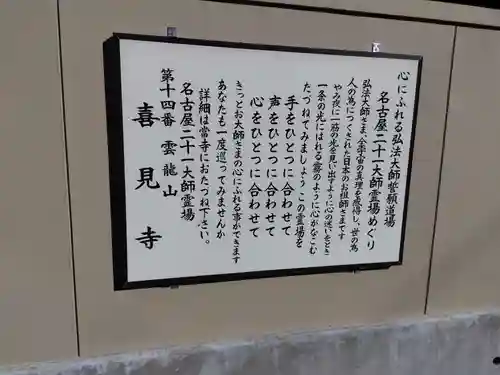 心にふれる弘法大師誓願道場
名古屋二十一大師霊場めぐり
弘法大師さま、全宇宙の真理を感得し、世の為
人の為につくされた日本のお祖師さまです
やみ夜に一筋の光を見い出すように心の迷いをとき
一条の光にはれる霧のように心がなごむ
たづねてみましょうこの霊場を
手をひとつに合わせて
声をひとつに合わせて
心をひとつに合わせて
きっとお大師さまの心にふれる事ができます
あなたも一度巡ってみませんか
詳細は當寺におたづね下さい。
名古屋二十一大師霊場
第十四番 雲龍山
喜見寺